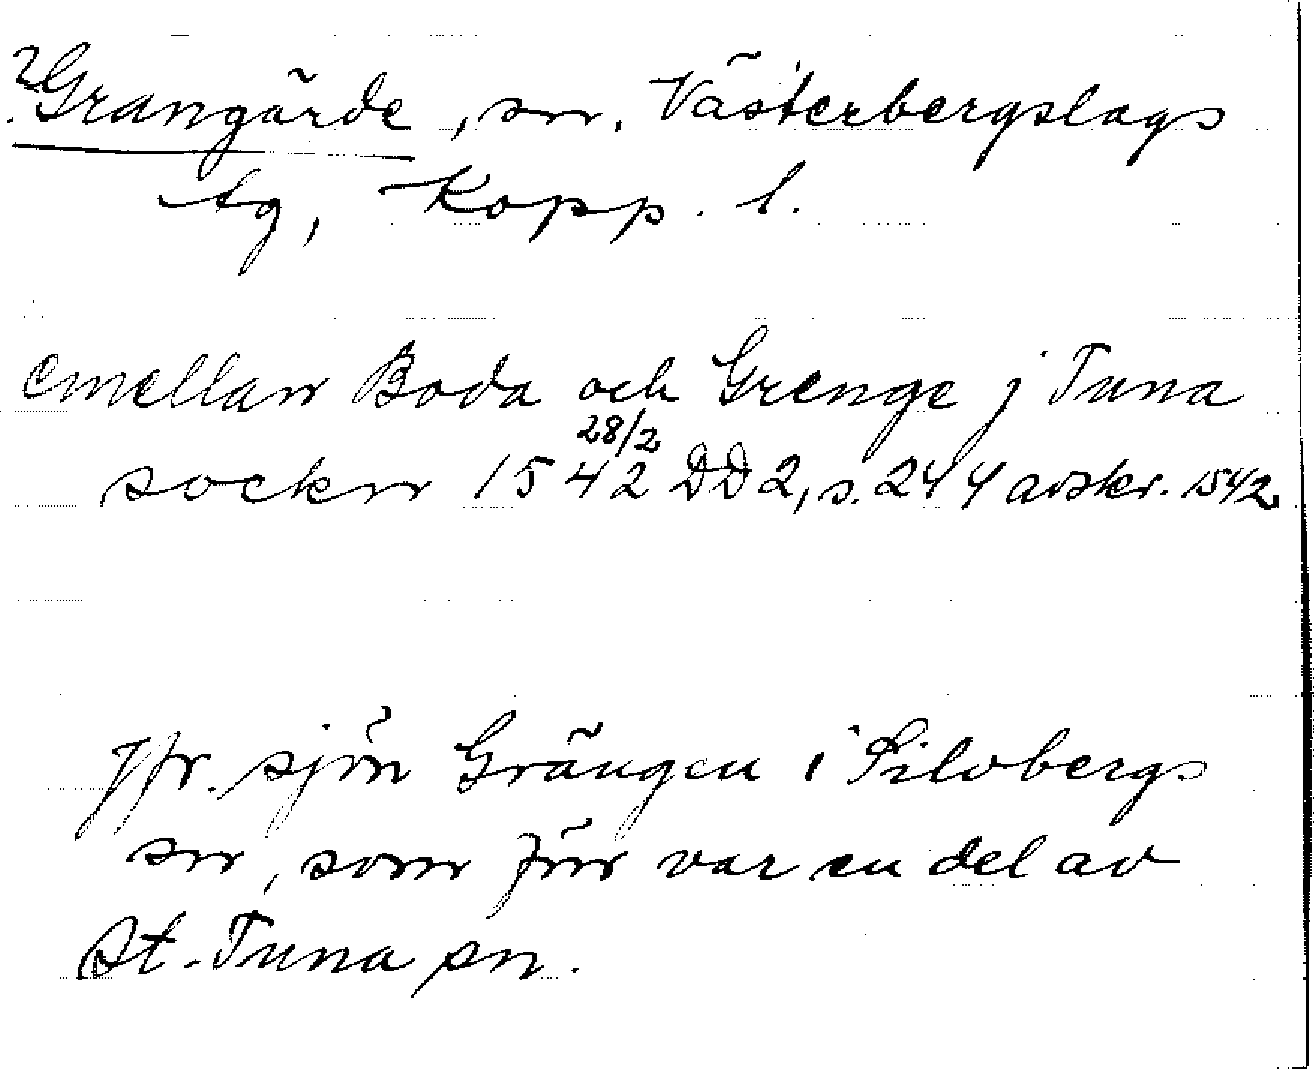 ?Grangärde, sn, Västerbergslags
tg, Kopp. l.
emellan Boda och Grenge j Tuna
28/2
socken 1542 DD 2, s. 244 avskr. 1542
Jfr. sjön Grängen i Silvbergs
sn, som förr var en del av
St. Tuna sn.